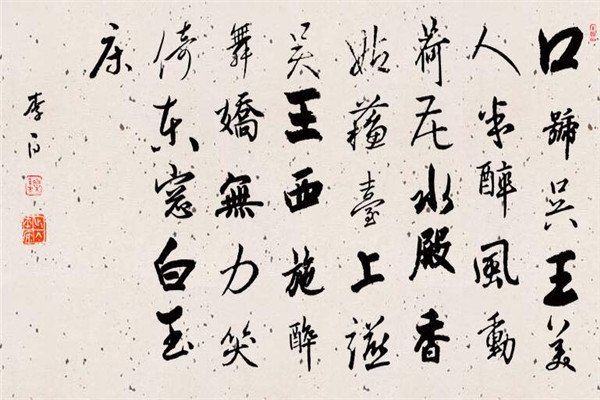 口號吳王美
人半醉風動
荷花水殿香
姑蘇臺上讌
吳王西施醉
舞嬌無力笑
倚東窗白玉
床
李白